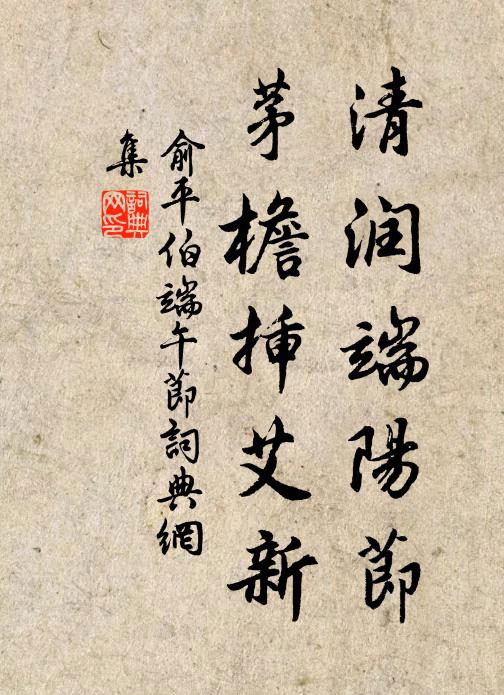 清润端陽節
茅檐挿艾新
俞平伯端午節詞典網
集
詞典
网印